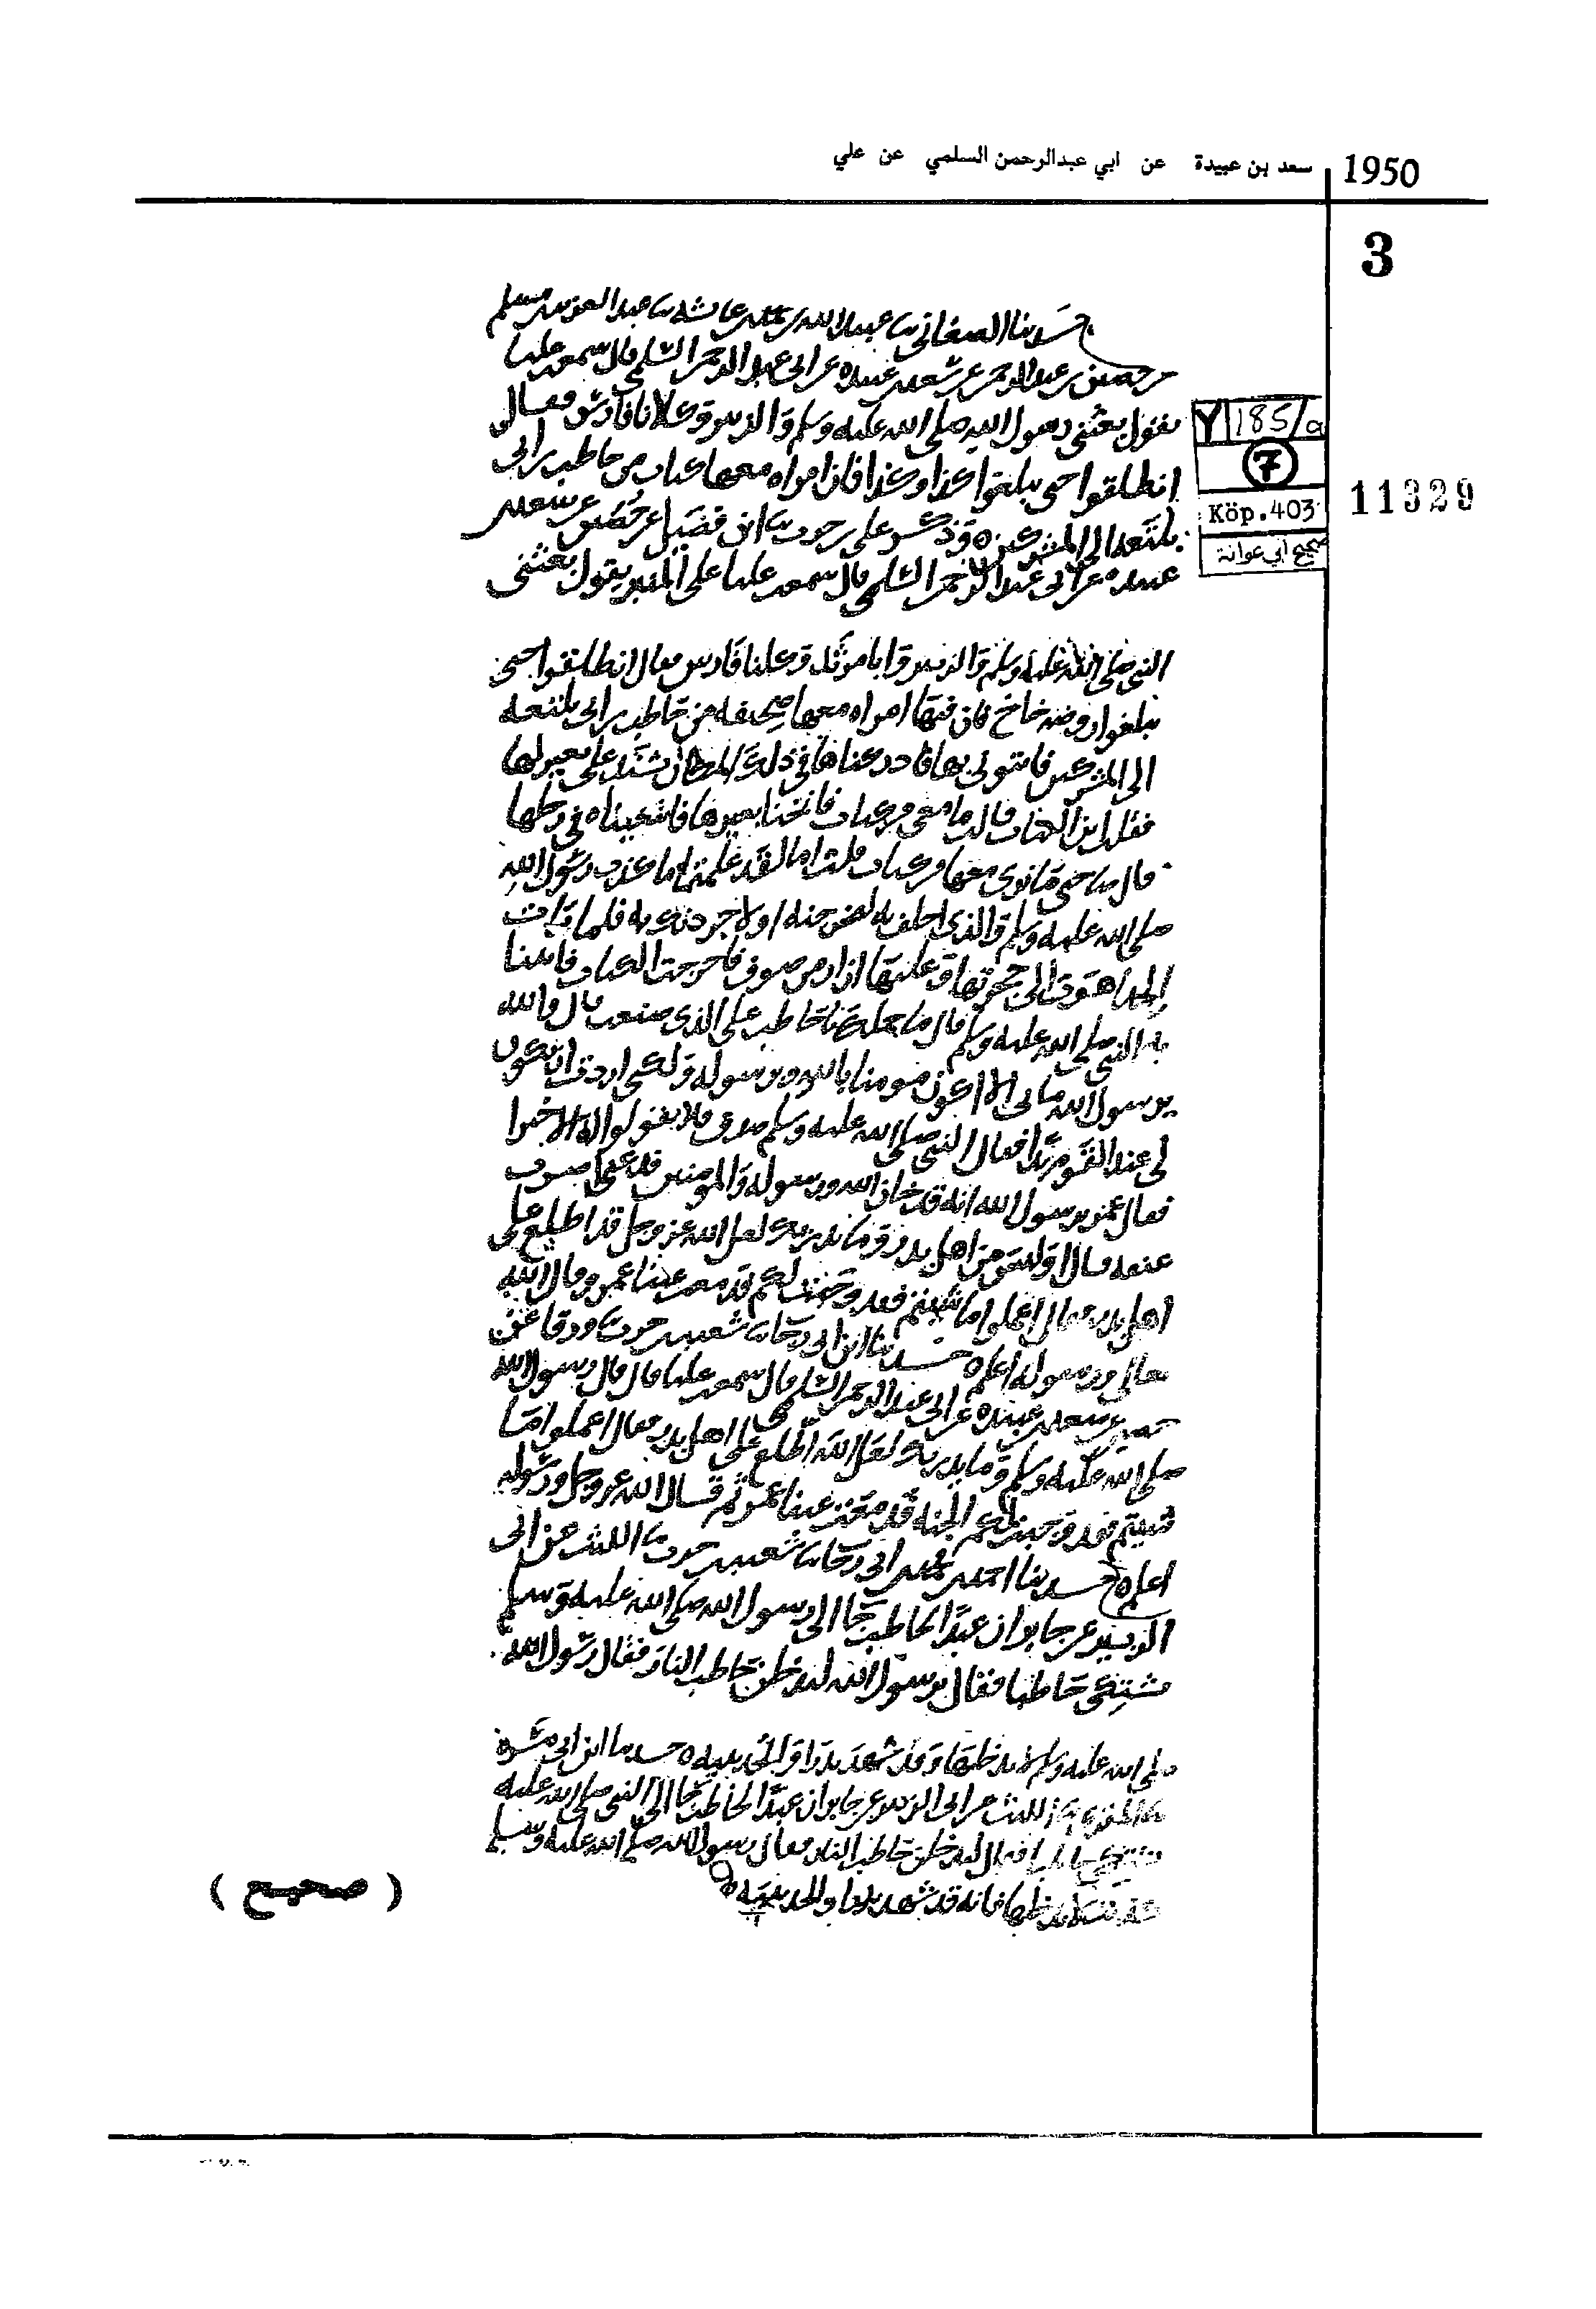 1950 سعد بن عبيدة عن ابي عبدالرحمن السلمي عن علي
3
حدثنا الصغاني ثنا عبيد الله بن محمد بن عائشة ثنا عبد العزيز بن مسلم
عن حصين بن عبد الرحمن عن سعد بن عبيده عن ابي عبد الرحمن السلمي قال سمعت عليا
يقول بعثني رسول الله صلى الله عليه وسلم والزبير وكلانا فارس فقال
انطلقوا حتى تبلغوا كذا وكذا فان امراه معها كتاب من حاطب بن ابي
بلتعه الى المشركين وذكر علي بن حرب ثنا ابن فضيل عن حصين عن سعد بن
عبيده عن ابي عبد الرحمن السلمي قال سمعت عليا على المنبر يقول بعثني
Y 185/a
7
Köp. 403
صحيح ابي عوانة
11329
النبي صلى الله عليه وسلم والزبير وابا مرثد وكلنا فارس فقال انطلقوا حتى
تبلغوا روضه خاخ فان فيها امراه معها صحيفه من حاطب بن ابي بلتعه
الى المشركين فاتوني بها فادركناها في ذلك المكان تشتد على بعير لها
فقلنا اين الكتاب قالت ما معي من كتاب فانخنا بعيرها فابتغيناه في رحلها
قال صاحبي ما نرى معها من كتاب قلت اما لقد علمتما ما كذب رسول الله
صلى الله عليه وسلم والذي احلف به لتخرجنه او لاجردنك به فلما رات
الجد اهوت الى حجزتها وعليها ازار من صوف فاخرجت الكتاب فاتينا
به النبي صلى الله عليه وسلم فقال ما حملك يا حاطب على الذي صنعت قال والله
يرسول الله ما بي الا اكون مومنا بالله وبرسوله ولكني اردت ان تكون
لي عند القوم يدا فقال النبي صلى الله عليه وسلم صدق فلا تقولوا له الا خيرا
فقال عمر يرسول الله انه قد خان الله ورسوله والمومنين فدعني اضرب
عنقه قال اوليس من اهل بدر وما يدريك لعل الله عز وجل قد اطلع على
اهل بدر فقال اعملوا ما شيتم فقد وجبت لكم فدمعت عينا عمر وقال الله
تعالى ورسوله اعلم حدثنا ابن ابي رجاء ثنا شعيب بن حرب ثنا ورقا عن
حصين عن سعد بن عبيده عن ابي عبد الرحمن السلمي قال سمعت عليا قال قال رسول الله
صلى الله عليه وسلم وما يدريك لعل الله اطلع على اهل بدر فقال اعملوا ما
شيتم فقد وجبت لكم الجنه فدمعت عينا عمر ثم قال الله عز وجل ورسوله
اعلم حدثنا احمد بن محمد بن ابي رجاء ثنا شعيب بن حرب ثنا الليث عن ابي
الزبير عن جابر ان عبدا لحاطب جا الى رسول الله صلى الله عليه وسلم
يشتكي حاطبا فقال يرسول الله ليدخلن حاطب النار فقال رسول الله
صلى الله عليه وسلم لا يدخلها وقد شهد بدرا والحديبيه حدثنا ابن ابي مسره
ثنا المقري ثنا الليث عن ابي الزبير عن جابر ان عبدا لحاطب جا الى النبي صلى الله عليه
يشتكي حاطبا فقال ليدخلن حاطب النار فقال رسول الله صلى الله عليه وسلم
لا يدخلها فانه قد شهد بدرا والحديبيه
( صحيح )